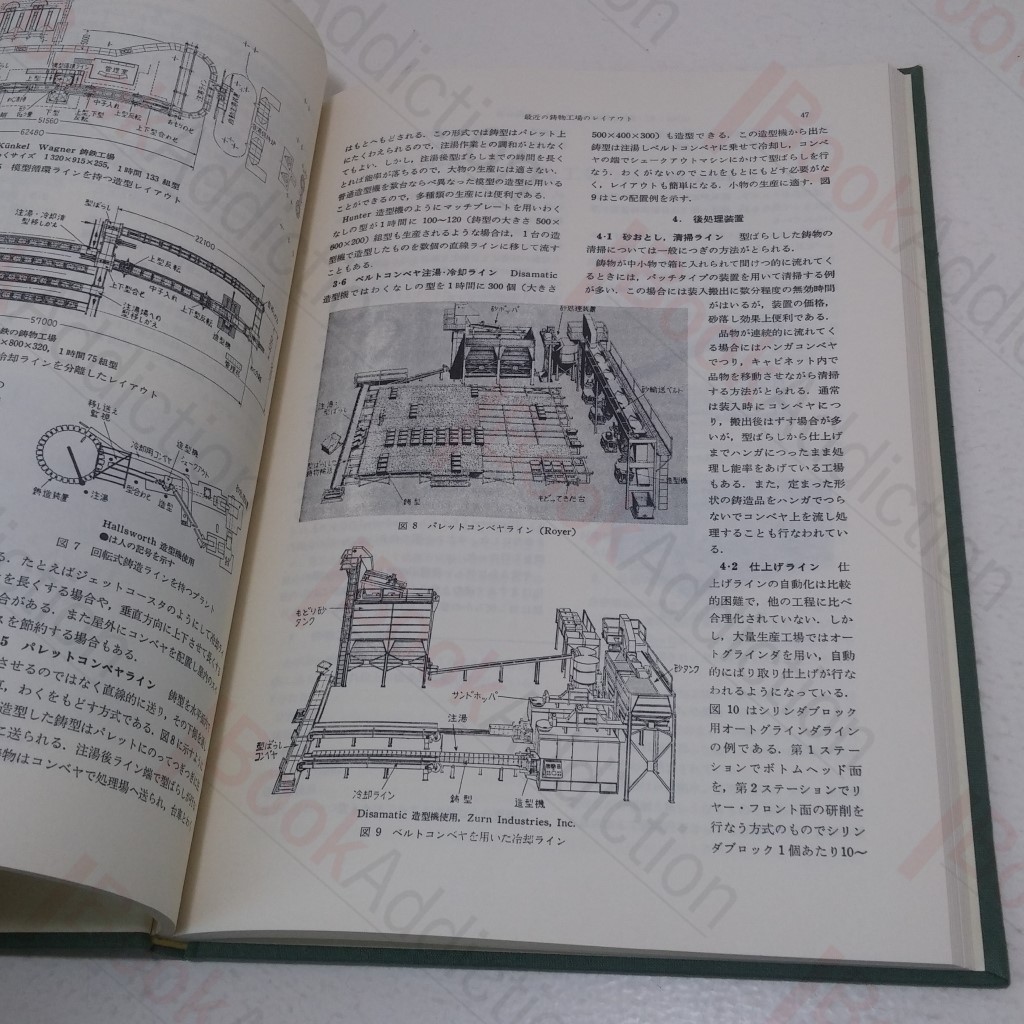 管理室
上型
中子入れ
上型反転
下型
上下型合わせ
おもりのせ
51560
62480
Künkel Wagner 鋳鉄工場
わくサイズ 1320×915×255, 1時間 133 組型
模型循環ラインを持つ造型レイアウト
型ばらし
注湯・冷却済
型移しかえ
22100
上型反転
上下型合せ
下型反転
注湯場への
型移しかえ
造型機
管理室
57000
鉄の鋳物工場
×800×320, 1時間 75組型
冷却ラインを分離したレイアウト
移し送え
監視
冷却用コンベヤ
造型機
シェークアウト
鋳造装置
注湯
型合わせ
造型
Hallsworth 造型機使用
●は人の記号を示す
図7 回転式鋳造ラインを持つプラント
る．たとえばジェットコースタのようにして冷却ラ
を長くする場合や，垂直方向に上下させて長くす
合がある．また屋外にコンベヤを配置し屋内の
スを節約する場合もある．
5 パレットコンベヤライン 鋳型を水平
させるのではなく直線的に送り，その
わくをもどす方式である．図8に示す
造型した鋳型はパレットにのってつぎつぎ
に送られる．注湯後ライン端で型ばらしが
物はコンベヤで処理場へ送られ，台車と
最近の鋳物工場のレイアウト 47
はもとへもどされる．この形式では鋳型はパレット上
にたくわえられるので，注湯作業との調和がとれなく
てもよい．しかし，注湯後型ばらしまでの時間を長く
とれば能率が落ちるので，大物の生産には適さない．
普通造型機を数台ならべ異なった模型の造型に用いる
ことができるので，多種類の生産には便利である．
Hunter 造型機のようにマッチプレートを用いわく
なしの型が1時間に 100～120 (鋳型の大きさ 500×
600×200) 組型も生産されるような場合は，1台の造
型機で造型したものを数個の直線ラインに移して流す
こともある．
3·6 ベルトコンベヤ注湯·冷却ライン Disamatic
造型機ではわくなしの型を1時間に 300個 (大きさ
500×400×300) も造型できる．この造型機から出た
鋳型は注湯しベルトコンベヤに乗せて冷却し，コンベ
ヤの端でシェークアウトマシンにかけて型ばらしを行
なう．わくがないのでこれをもとにもどす必要がな
く，レイアウトも簡単になる．小物の生産に適す．図
9はこの配置例を示す．
4. 後処理装置
4·1 砂おとし，清掃ライン 型ばらしした鋳物の
清掃については一般につぎの方法がとられる．
鋳物が中小物で箱に入れられて間けつ的に流れてく
るときには，バッチタイプの装置を用いて清掃する例
が多い．この場合には装入搬出に数分程度の無効時間
がはいるが，装置の価格，
砂落し効果上便利である．
品物が連続的に流れてく
る場合にはハンガコンベヤ
でつり，キャビネット内で
品物を移動させながら清掃
する方法がとられる．通常
は装入時にコンベヤにつ
り，搬出後はずす場合が多
いが，型ばらしから仕上げ
までハンガにつったまま処
理し能率をあげている工場
もある．また，定まった形
状の鋳造品をハンガでつら
ないでコンベヤ上を流し処
理することも行なわれてい
る．
4·2 仕上げライン 仕
上げラインの自動化は比較
的困難で，他の工程に比べ
合理化されていない．しか
し，大量生産工場ではオー
トグラインダを用い，自動
的にばり取り仕上げが行な
われるようになっている．
図10 はシリンダブロック
用オートグラインダライン
の例である．第1ステー
ションでボトムヘッド面
を，第2ステーションでリ
ヤー・フロント面の研削を
行なう方式のものでシリン
ダブロック1個あたり10～
砂ホッパ
砂処理装置
砂輸送ベルト
注湯し
型ばらし
鋳型
もどってきた台
造型機
図8 パレットコンベヤライン (Royer)
もどり砂
タンク
砂タンク
サンドホッパ
注湯
型ばらし
コンベヤ
冷却ライン
鋳型
造型機
Disamatic 造型機使用, Zurn Industries, Inc.
図9 ベルトコンベヤを用いた冷却ライン
BookAddiction